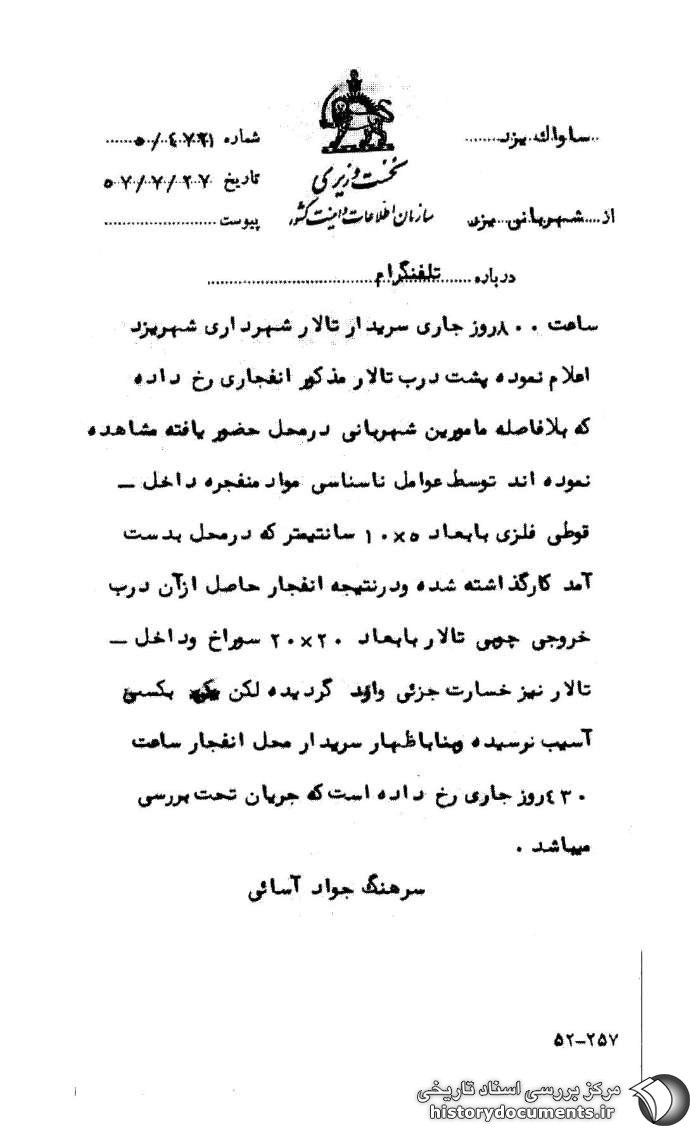 ساواک یزد
شماره ۵/۴۷۲۱
نخست وزیری
تاریخ ۵۷/۷/۲۷
سازمان اطلاعات و امنیت کشور
از شهربانی یزد
پیوست
درباره تلفنگرام
ساعت ۸۰۰ روز جاری سریدار تالار شهرداری شهر یزد
اعلام نموده پشت درب تالار مذکور انفجاری رخ داده
که بلافاصله مامورین شهربانی درمحل حضور یافته مشاهده
نموده اند توسط عوامل ناسناسی مواد منفجره داخل –
قوطی فلزی بابعاد ۵×۱۰ سانتیمتر که درمحل بدست
آمد کارگذاشته شده ودرنتیجه انفجار حاصل ازآن درب
خروجی چوبی تالار بابعاد ۲۰×۲۰ سوراخ وداخل –
تالار نیز خسارت جزئی وارد گردیده لکن بکسی
آسیب نرسیده وبناباظهار سریدار محل انفجار ساعت
۴۳۰ روز جاری رخ داده است که جریان تحت بررسی
میباشد .
سرهنگ جواد آسائی
۵۲-۲۵۷
مرکز بررسی اسناد تاریخی
historydocuments.ir